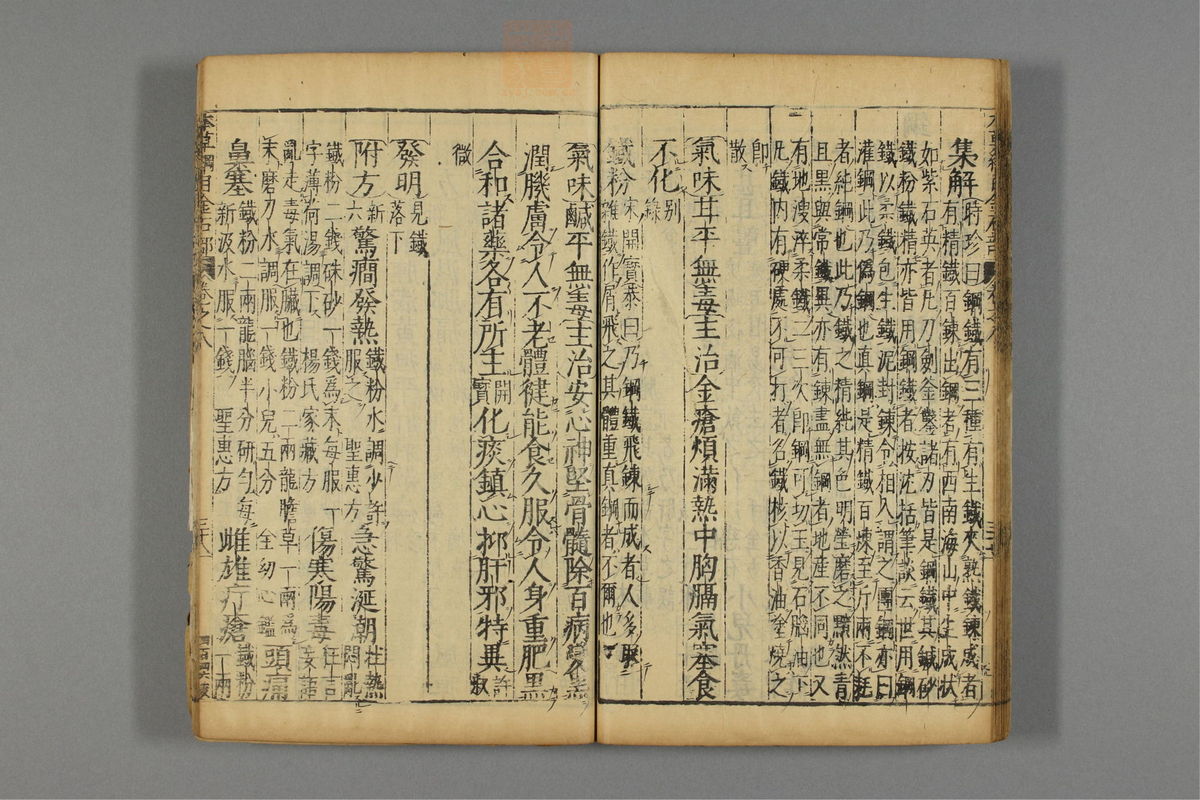 集解時珍曰鋼鐵有三種有生鐵夾熟鐵鍊成者
有精鐵百鍊出鋼者有西南海山中生成狀
如紫石英者凡刀劍斧鑿諸刃皆是鋼鐵其鍼砂
鐵粉鐵精亦皆用鋼鐵者按沈括筆談云世用鋼
鐵以柔鐵包生鐵泥封鍊令相入謂之團鋼亦曰
灌鋼此乃僞鋼也真鋼是精鐵百鍊至斤兩不耗
者純鋼也此乃鐵之精純其色明瑩磨之黯然青
且黑與常鐵異亦有鍊盡無鋼者地產不同也又
有地溲淬柔鐵二三次即鋼可切玉見石腦油下
凡鐵內有硬處不可打者名鐵核以香油塗燒之
即散
氣味甘平無毒主治金瘡煩滿熱中胸膈氣塞食
不化別錄
鐵粉宋開寶恭曰乃鋼鐵飛鍊而成者人多取
雜鐵作屑飛之其體重真鋼者不爾也
氣味鹹平無毒主治安心神堅骨髓除百病變黑
潤肌膚令人不老體健能食久服令人身重肥黑
合和諸藥各有所主開寶化痰鎮心抑肝邪特異許叔
微
發明見鐵落下
附方新六驚癇發熱鐵粉水調少許服之聖惠方急驚涎潮壯熱悶亂
鐵粉二錢硃砂一錢為末每服一
字薄荷湯調下楊氏家藏方傷寒陽毒狂言妄語
亂走毒氣在臟也鐵粉二兩龍膽草一兩為
末磨刀水調服一錢小兒五分全幼心鑑頭痛
鼻塞鐵粉二兩龍腦半分研勻每
新汲水服一錢聖惠方雌雄疔瘡鐵粉一兩
本草綱目金石部 卷之八